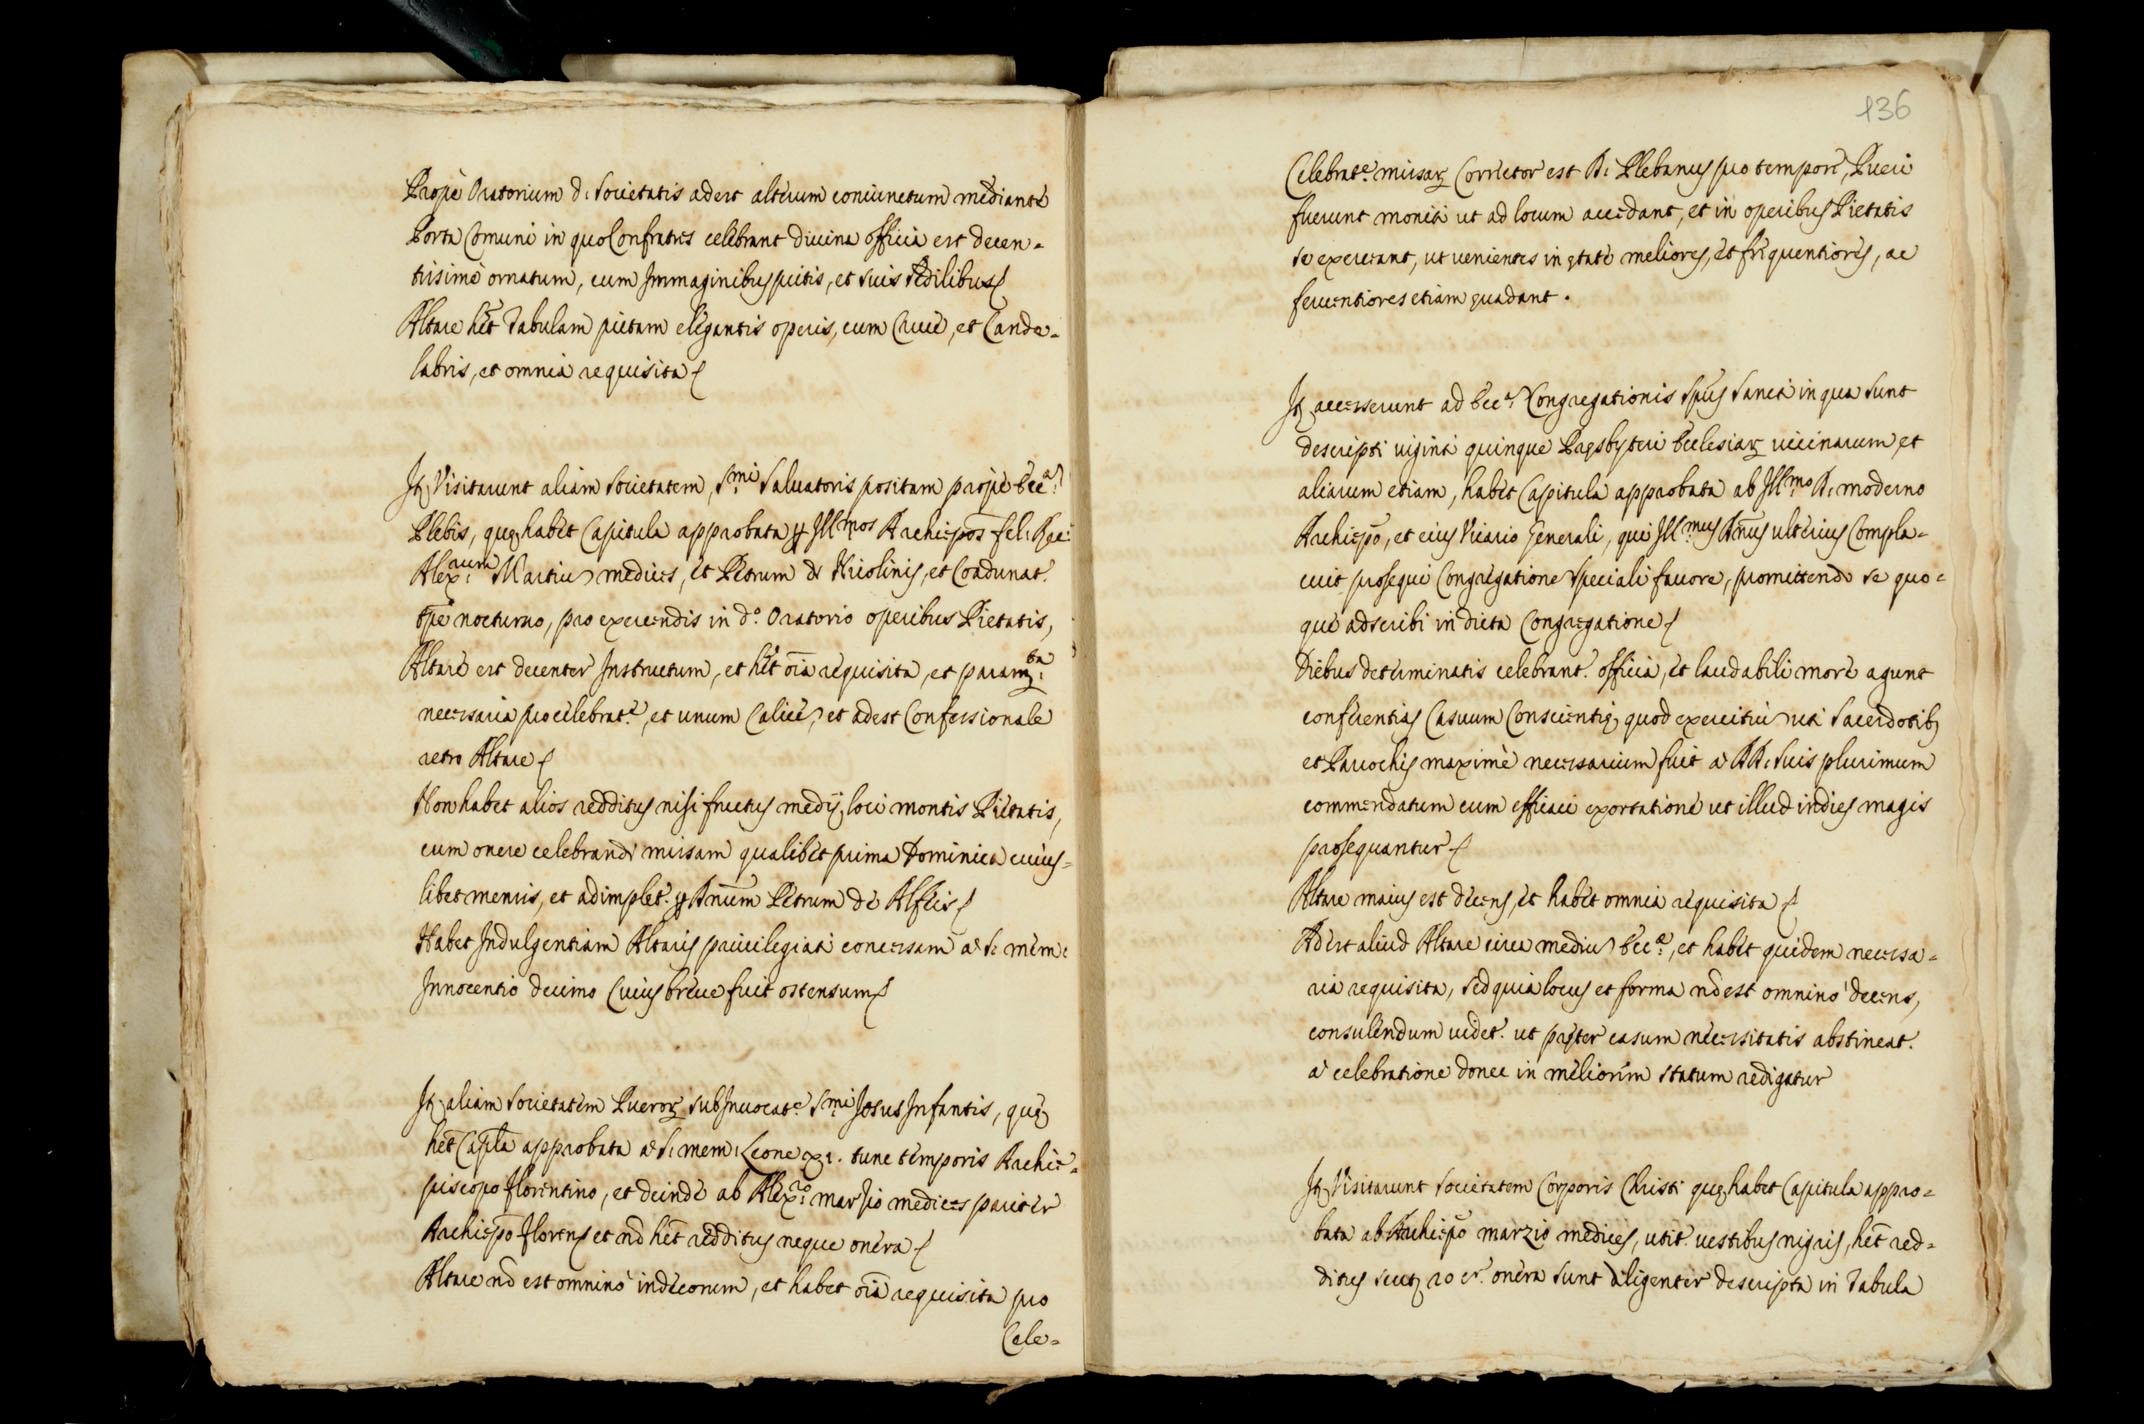 Propè Oratorium d: Societatis adest alterum coniunctum mediante
Porta Comuni in quo Confratres celebrant divina officia est decen-
tissimè ornatum, cum Immaginibus pictis, et suis sedilibus
Altare hēt Tabulam pictam elegantis operis, cum Cruce, et Cande-
labris, et omnia requisita
It. Visitarunt aliam Societatem, S.mi Salvatoris positam propè Ecc.a
Plebis, quę habet Capitula approbata per Ill.mos Archiepōs fel: Rec:
Alex.rum Martiū medices, et Petrum de Niccolinis, et Coadunat.
tpē nocturno, pro exercendis in d.o Oratorio operibus Pietatis,
Altare est decenter Instructum, et hēt oīa requisita, et param.ta
necessaria pro celebrat.e, et unum Calicē, et adest Confessionale
retro Altare
Non habet alios redditus nisi fructus medij loci montis Pietatis,
cum onere celebrandi missam qualibet prima Dominica cuius-
libet mensis, et adimplet. per Dnum Petrum de Alfeis
Habet Indulgentiam Altaris privilegiati concessam a S: mem:
Innocentio decimo Cuius breve fuit ostensum
It. aliam Societatem Pueror. sub Invocat.e S.mi Jesus Infantis, quę
hēt Capla approbata a S: mem: Leone XI. tunc temporis Archie-
piscopo Florentino, et deinde ab Alex.ro marzio medices pariter
Archiepō Florens et nō hēt redditus neque onera
Altare nō est omninò indecorum, et habet oīa requisita pro
Cele-
136
Celebrat.e missar. Corrector est D: Plebanus pro tempore, Pueri
fuerunt moniti ut ad locum accedant, et in operibus Pietatis
se exerceant, ut venientes in ętate meliores, et frequentiores, ac
ferventiores etiam evadant.
It. accesserunt ad Ecc.am Congregationis Spūs Sancti in qua sunt
descripti viginti quinque Pręsbyteri Ecclesiar. vicinarum, et
aliarum etiam, habet Capitula approbata ab Ill.mo D: moderno
Archiepō, et eius Vicario Generali, qui Ill.mus Dnus ulterius Compla-
cuit prosequi Congregatione Speciali favore, promittendo se quo-
que adscribi in dicta Congregatione
Diebus determinatis celebrant. officia, et laudabili more agunt
conferentias Casuum Conscientię, quod exercitiū uti Sacerdotib.
et Parochis maximè necessarium fuit a DD: Suis plurimum
commendatum cum efficaci exortatione ut illud indies magis
prosequantur
Altare maius est decens, et habet omnia requisita
Adest aliud Altare circa mediū Ecc.ę, et habet quidem necessa-
ria requisita, sed quia locus et forma nō est omninò decens,
consulendum videt. ut pręter casum necessitatis abstineat.
a celebratione donec in meliorem statum redigatur
It. Visitarunt Societatem Corporis Christi quę habet Capitula appro-
bata ab Archiepō marzio medices, utit. vestibus nigris, hēt red-
ditus scut. 20 cr. onera sunt diligenter descripta in Tabula